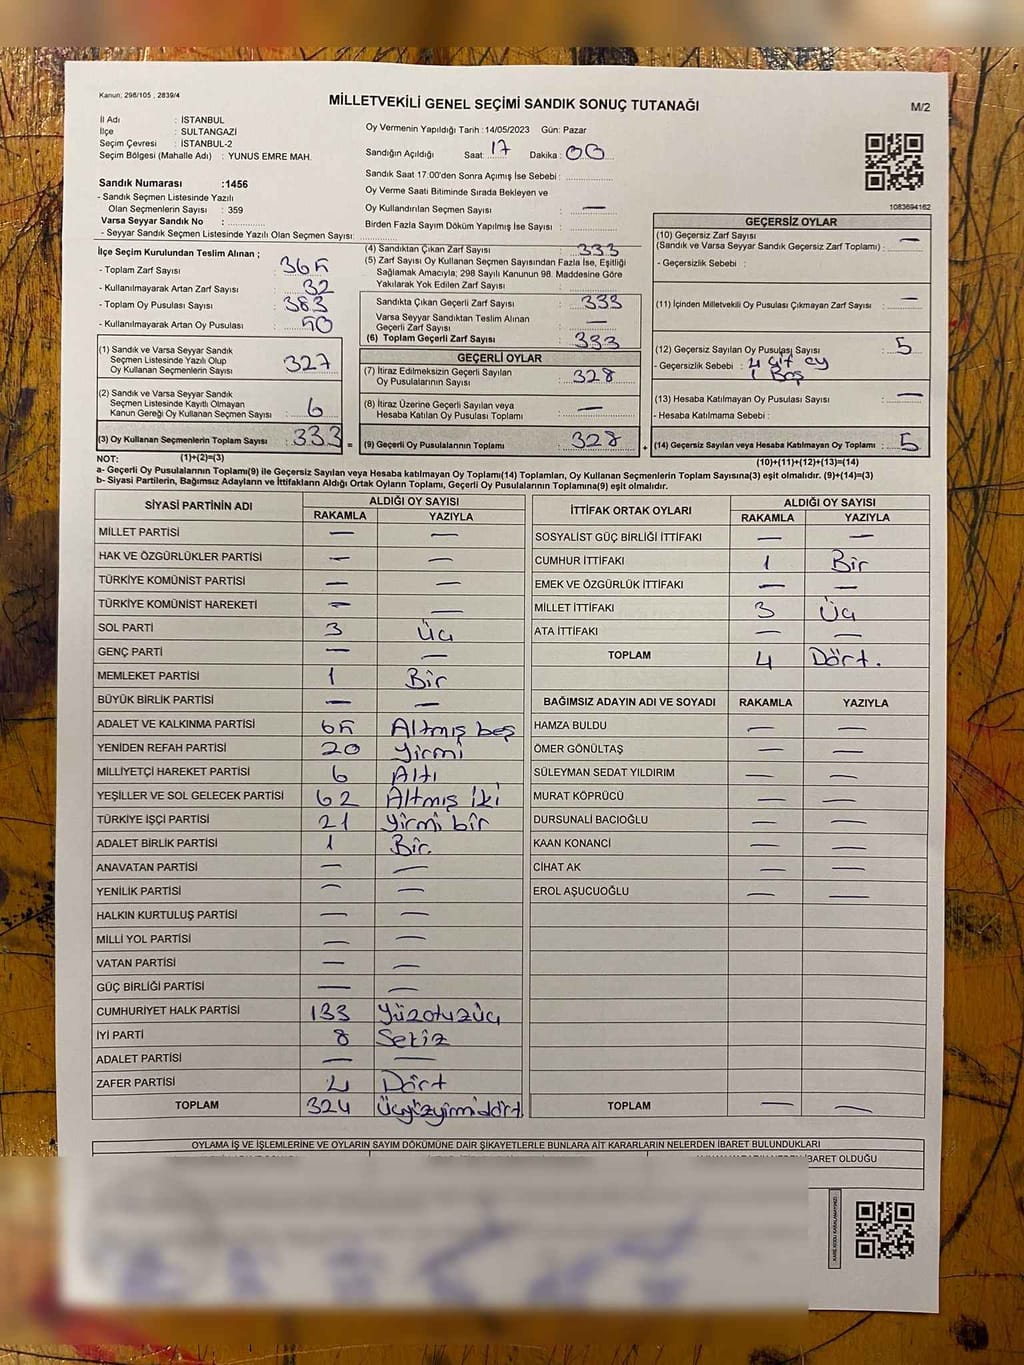 Kanun: 298/105 , 2839/4
MİLLETVEKİLİ GENEL SEÇİMİ SANDIK SONUÇ TUTANAĞI
M/2
İl Adı : İSTANBUL
İlçe : SULTANGAZİ
Seçim Çevresi : İSTANBUL-2
Seçim Bölgesi (Mahalle Adı) : YUNUS EMRE MAH.
Sandık Numarası :1456
- Sandık Seçmen Listesinde Yazılı
Olan Seçmenlerin Sayısı : 359
Varsa Seyyar Sandık No :
- Seyyar Sandık Seçmen Listesinde Yazılı Olan Seçmen Sayısı:
Oy Vermenin Yapıldığı Tarih :14/05/2023 Gün: Pazar
Sandığın Açıldığı Saat : 17 Dakika : 00
Sandık Saat 17:00'den Sonra Açımış İse Sebebi :
Oy Verme Saati Bitiminde Sırada Bekleyen ve
Oy Kullandırılan Seçmen Sayısı : —
Birden Fazla Sayım Döküm Yapılmış İse Sayısı :
1083694162
İlçe Seçim Kurulundan Teslim Alınan ;
- Toplam Zarf Sayısı : 365
- Kullanılmayarak Artan Zarf Sayısı : 32
- Toplam Oy Pusulası Sayısı : 383
- Kullanılmayarak Artan Oy Pusulası : 50
(1) Sandık ve Varsa Seyyar Sandık
Seçmen Listesinde Yazılı Olup
Oy Kullanan Seçmenlerin Sayısı : 327
(2) Sandık ve Varsa Seyyar Sandık
Seçmen Listesinde Kayıtlı Olmayan
Kanun Gereği Oy Kullanan Seçmen Sayısı : 6
(3) Oy Kullanan Seçmenlerin Toplam Sayısı : 333 =
(4) Sandıktan Çıkan Zarf Sayısı : 333
(5) Zarf Sayısı Oy Kullanan Seçmen Sayısından Fazla İse, Eşitliği
Sağlamak Amacıyla; 298 Sayılı Kanunun 98. Maddesine Göre
Yakılarak Yok Edilen Zarf Sayısı :
Sandıkta Çıkan Geçerli Zarf Sayısı : 333
Varsa Seyyar Sandıktan Teslim Alınan
Geçerli Zarf Sayısı : —
(6) Toplam Geçerli Zarf Sayısı : 333
GEÇERLİ OYLAR
(7) İtiraz Edilmeksizin Geçerli Sayılan
Oy Pusulalarının Sayısı : 328
(8) İtiraz Üzerine Geçerli Sayılan veya
Hesaba Katılan Oy Pusulası Toplamı : —
(9) Geçerli Oy Pusulalarının Toplamı : 328 +
GEÇERSİZ OYLAR
(10) Geçersiz Zarf Sayısı
(Sandık ve Varsa Seyyar Sandık Geçersiz Zarf Toplamı) : —
- Geçersizlik Sebebi :
(11) İçinden Milletvekili Oy Pusulası Çıkmayan Zarf Sayısı : —
(12) Geçersiz Sayılan Oy Pusulası Sayısı : 5
- Geçersizlik Sebebi : 4 Çift oy
1 Boş
(13) Hesaba Katılmayan Oy Pusulası Sayısı : —
- Hesaba Katılmama Sebebi :
(14) Geçersiz Sayılan veya Hesaba Katılmayan Oy Toplamı : 5
NOT: (1)+(2)=(3) (10)+(11)+(12)+(13)=(14)
a- Geçerli Oy Pusulalarının Toplamı(9) ile Geçersiz Sayılan veya Hesaba katılmayan Oy Toplamı(14) Toplamları, Oy Kullanan Seçmenlerin Toplam Sayısına(3) eşit olmalıdır. (9)+(14)=(3)
b- Siyasi Partilerin, Bağımsız Adayların ve İttifakların Aldığı Ortak Oyların Toplamı, Geçerli Oy Pusulalarının Toplamına(9) eşit olmalıdır.
SİYASİ PARTİNİN ADI ALDIĞI OY SAYISI
RAKAMLA YAZIYLA
MİLLET PARTİSİ — —
HAK VE ÖZGÜRLÜKLER PARTİSİ — —
TÜRKİYE KOMÜNİST PARTİSİ — —
TÜRKİYE KOMÜNİST HAREKETİ — —
SOL PARTİ 3 Üç
GENÇ PARTİ — —
MEMLEKET PARTİSİ 1 Bir
BÜYÜK BİRLİK PARTİSİ — —
ADALET VE KALKINMA PARTİSİ 65 Altmış beş
YENİDEN REFAH PARTİSİ 20 Yirmi
MİLLİYETÇİ HAREKET PARTİSİ 6 Altı
YEŞİLLER VE SOL GELECEK PARTİSİ 62 Altmış iki
TÜRKİYE İŞÇİ PARTİSİ 21 Yirmi bir
ADALET BİRLİK PARTİSİ 1 Bir
ANAVATAN PARTİSİ — —
YENİLİK PARTİSİ — —
HALKIN KURTULUŞ PARTİSİ — —
MİLLİ YOL PARTİSİ — —
VATAN PARTİSİ — —
GÜÇ BİRLİĞİ PARTİSİ — —
CUMHURİYET HALK PARTİSİ 133 Yüzotuzüç
İYİ PARTİ 8 Sekiz
ADALET PARTİSİ — —
ZAFER PARTİSİ 4 Dört
TOPLAM 324 Üçyüzyirmidört
İTTİFAK ORTAK OYLARI ALDIĞI OY SAYISI
RAKAMLA YAZIYLA
SOSYALİST GÜÇ BİRLİĞİ İTTİFAKI — —
CUMHUR İTTİFAKI 1 Bir
EMEK VE ÖZGÜRLÜK İTTİFAKI — —
MİLLET İTTİFAKI 3 Üç
ATA İTTİFAKI — —
TOPLAM 4 Dört.
BAĞIMSIZ ADAYIN ADI VE SOYADI RAKAMLA YAZIYLA
HAMZA BULDU — —
ÖMER GÖNÜLTAŞ — —
SÜLEYMAN SEDAT YILDIRIM — —
MURAT KÖPRÜCÜ — —
DURSUNALİ BACIOĞLU — —
KAAN KONANCİ — —
CİHAT AK — —
EROL AŞUCUOĞLU — —
TOPLAM — —
OYLAMA İŞ VE İŞLEMLERİNE VE OYLARIN SAYIM DÖKÜMÜNE DAİR ŞİKAYETLERLE BUNLARA AİT KARARLARIN NELERDEN İBARET BULUNDUKLARI
İBARET OLDUĞU